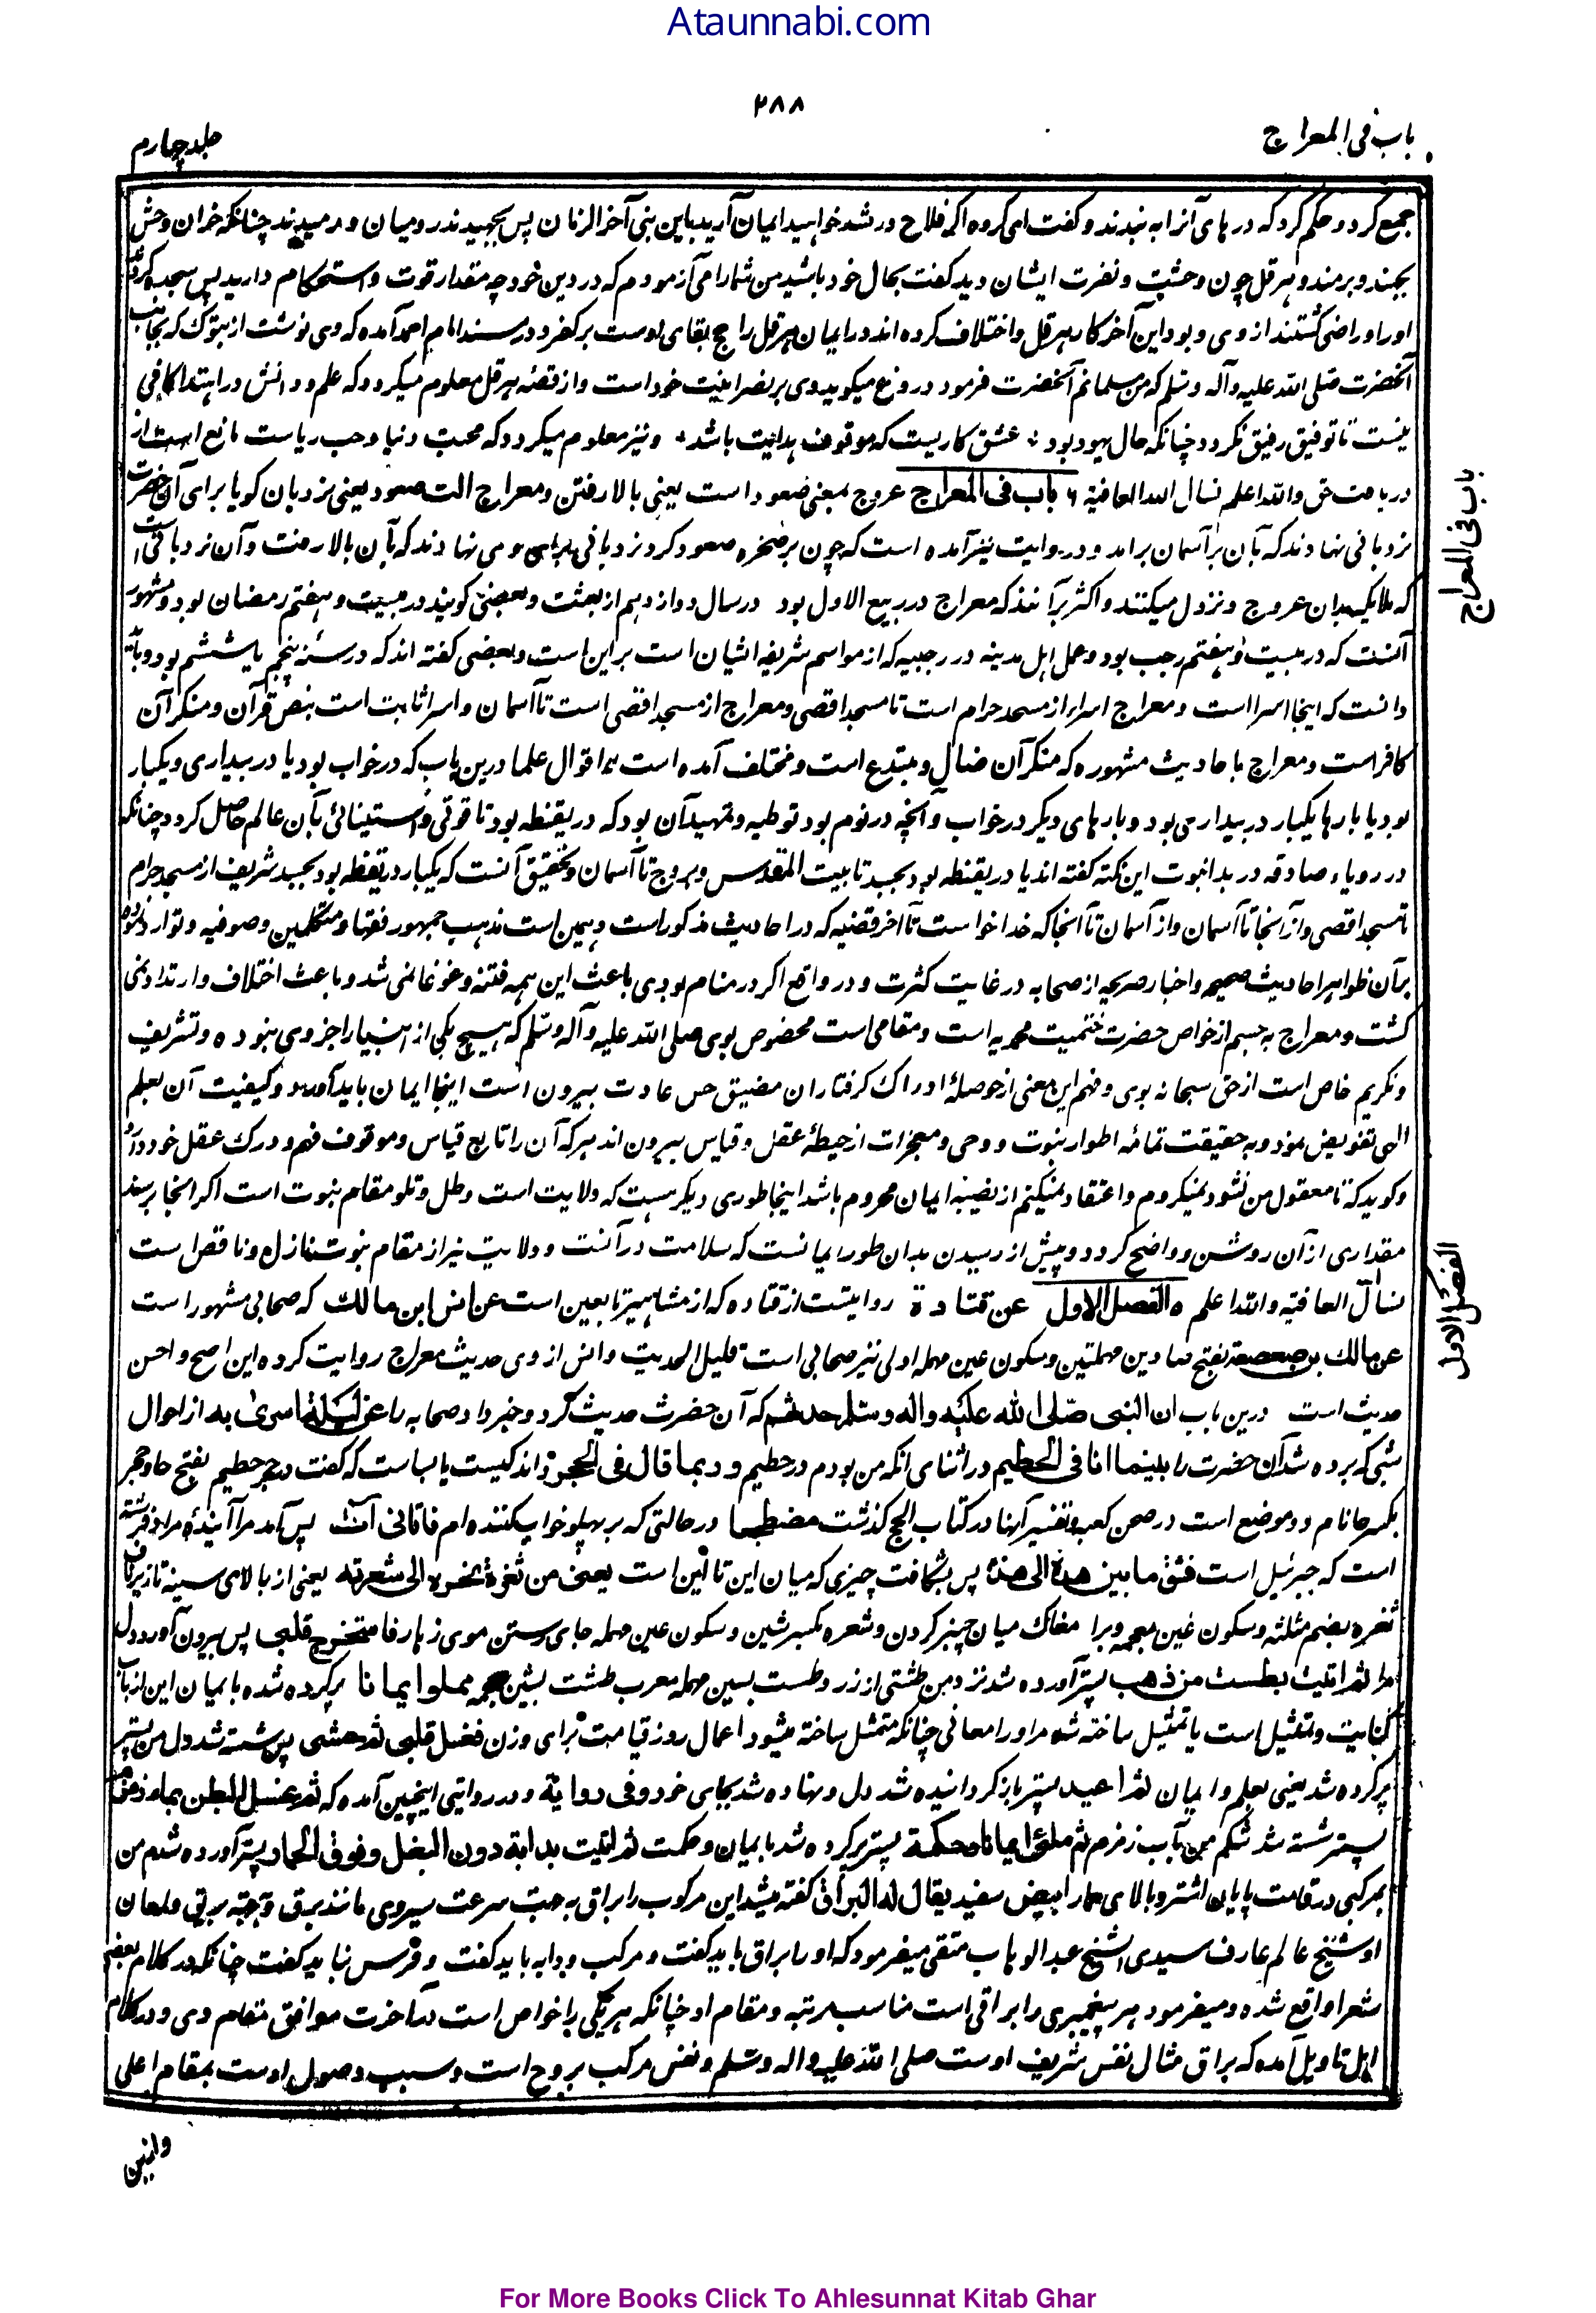 Ataunnabi.com
۲۸۸
باب فی المعراج
جلد چهارم
جمیع کرد و حکم کرد که در های آنرا به بندند و کفت ای کروه اکر فلاح و رشد خواهید ایمان آرید باین نبی آخر الزمان پس بجهیدند رومیان و رمیدند چنانکه خران وحش
بجهند و برمند و هرقل چون وحشت و نفرت ایشان دید کفت بحال خود باشید من شمارا می آزمودم که در دین خود چه مقدار قوت و استحکام دارید پس سجده کردند
اورا و راضی کشتند از وی و بود این آخر کار هرقل و اختلاف کرده اند در ایمان هرقل راجح بقای اوست بر کفر و در مسند امام احمد آمده که وی نوشت از تبوک که بجانب
آنحضرت صلی الله علیه وآله وسلم که من مسلمانم آنحضرت فرمود دروغ میکوید وی بر نصرانیت خود است و از قصه هرقل معلوم میکردد که علم و دانش در اهتدا کافی
نیست تا توفیق رفیق نکردد چنانکه حال یهود بود عشق کاریست که موقوف هدایت باشد و نیز معلوم میکردد که محبت دنیا و حب ریاست مانع است از
دریافت حق والله اعلم نسال الله العافیة باب فی المعراج عروج بمعنی صعود است یعنی بالا رفتن و معراج الت صعود یعنی نردبان کویا برای آن حضرت
نردبانی نهادند که بآن بر آسمان برامد و در روایت نیز آمده است که چون بر صخره صعود کرد نردبانی برای وی نهادند که بآن بالا رفت و آن نردبانی است
که ملایکه بدان عروج و نزول میکنند و اکثر بر آنند که معراج در ربیع الاول بود در سال دوازدهم از بعثت و بعضی کویند در بیست و هفتم رمضان بود و مشهور
آنست که در بیست و هفتم رجب بود و عمل اهل مدینه در رجبیه که از مواسم شریفه ایشان است بر این است و بعضی کفته اند که در سنه پنجم یا ششم بود و باید
دانست که اینجا اسرا است و معراج اسراء از مسجد حرام است تا مسجد اقصی و معراج از مسجد اقصی است تا آسمان و اسرا ثابت است بنص قرآن و منکر آن
کافر است و معراج باحادیث مشهوره که منکر آن ضال و مبتدع است و مختلف آمده است اقوال علما درین باب که در خواب بود یا در بیداری و یکبار
بود یا بارها یکبار در بیداری بود و بارهای دیکر در خواب و آنچه در نوم بود توطیه و تمهید آن بود که در یقظه بود تا قوتی و استیناسی بآن عالم حاصل کردد چنانکه
در رویاء صادقه در بدا نبوت این نکته کفته اند یا در یقظه بود بجسد تا بیت المقدس و بروح تا آسمان و تحقیق آنست که یکبار در یقظه بود بجسد شریف از مسجد حرام
تا مسجد اقصی و از آنجا تا آسمان و از آسمان تا آنجا که خدا خواست تا آخر قضیه که در احادیث مذکور است و همین است مذهب جمهور فقها و متکلمین و صوفیه و توارد نموده
بر آن ظواهر احادیث صحیحه و اخبار صریحه از صحابه در غایت کثرت و در واقع اکر در منام بودی باعث این همه فتنه و غوغا نمی شد و باعث اختلاف و ارتداد نمی
کشت و معراج به جسم از خواص حضرت ختمیت محمدیه است و مقامی است مخصوص بوی صلی الله علیه وآله وسلم که هیچ یکی از انبیا را جز وی نبوده و تشریف
و تکریم خاص است از حق سبحانه بوی و فهم این معنی از حوصلهٔ ادراک کرفتاران مضیق حس عادت بیرون است اینجا ایمان باید آورد و کیفیت آن بعلم
الهی تفویض نمود و به حقیقت تمامه اطوار نبوت و وحی و معجزات از حیطهٔ عقل و قیاس بیرون اند هر که آن را تابع قیاس و موقوف فهم و درک عقل خود دارد
و کوید که تا معقول من نشود نمیکروم و اعتقاد نمیکنم از نصیبه ایمان محروم باشد اینجا طوری دیکر هست که ولایت است و ظل و تلو مقام نبوت است اکر انجا برسند
مقداری از آن روشن و واضح کردد و پیش از رسیدن بدان طور ایمانست که سلامت در آنست و ولایت نیز از مقام نبوت نازل و ناقص است
نسأل العافیة والله اعلم الفصل الاول عن قتادة روایتست از قتاده که از مشاهیر تابعین است عن انس ابن مالک که صحابی مشهور است
عن مالک بن صعصعة بفتح صادین مهملتین و سکون عین مهمله اولی نیز صحابی است قلیل الحدیث و انس از وی حدیث معراج روایت کرده این اصح و احسن
حدیث است درین باب ان النبی صلی الله علیه واله وسلم حدثهم که آن حضرت حدیث کرد و خبر داد صحابه را عن لیلة اسری به از احوال
شبی که برده شد آن حضرت را بینما انا فی الحطیم در اثنای انکه من بودم در حطیم و ربما قال فی الحجر و اند کیست یا بسا است که کفت در حجر حطیم بفتح حا و حجر
بکسر حا نام دو موضع است در صحن کعبه و تفسیر آنها در کتاب الحج کذشت مضطجعا در حالتی که بر پهلو خواب کننده ام فاتانی آت پس آمد مرا آیندهٔ مراد فرشته
است که جبرئیل است فشق ما بین هذه الی هذه پس بشکافت چیزی که میان این تا این است یعنی من ثغرة نحره الی شعرته یعنی از بالای سینه تا زیر ناف
ثغره بضم مثلثه و سکون غین معجمه و برا مغاک میان چنبر کردن و شعره بکسر شین و سکون عین مهمله جای رستن موی زهار فاستخرج قلبی پس بیرون آورد دل
مرا ثم اتیت بطست من ذهب پستر آورده شد نزد من طشتی از زر و طست بسین مهمله معرب طشت بشین معجمه مملوا ایمانا پر کرده شده بایمان این از باب
کنایت و تمثیل است یا تمثیل ساخته شد مر اورا معانی چنانکه متمثل ساخته میشود اعمال روز قیامت برای وزن فغسل قلبی ثم حشی پس شسته شد دل من پستر
پر کرده شد یعنی بعلم و ایمان ثم اعید پستر باز کردانیده شد دل و نهاده شد بجای خود و فی روایة و در روایتی اینچنین آمده که ثم غسل البطن بماء زمزم
پستر شسته شد شکم من بآب زمزم ثم ملئ ایمانا وحکمة پستر پر کرده شد بایمان و حکمت ثم اتیت بدابة دون البغل وفوق الحمار پستر آورده شدم من
بمرکبی در قامت پایان اشتر و بالای حمار ابیض سفید یقال له البراق کفته میشد این مرکوب را براق به جهت سرعت سیر وی مانند برق و جهته بریق و لمعان
او شیخ عالم عارف سیدی الشیخ عبد الوهاب متقی میفرمود که او را براق باید کفت و مرکب و دابه باید کفت و فرس نباید کفت چنانکه در کلام بعضی
شعرا واقع شده و میفرمود هر پیغمبری را براقی است مناسب مرتبه و مقام او چنانکه هر یکی را خواص است در آخرت موافق مقام وی و در کلام
اهل تاویل آمده که براق مثال نفس شریف اوست صلی الله علیه واله وسلم و نفس مرکب بروح است و سبب وصول اوست بمقام اعلی
باب فی المعراج
الفصل الاول
For More Books Click To Ahlesunnat Kitab Ghar